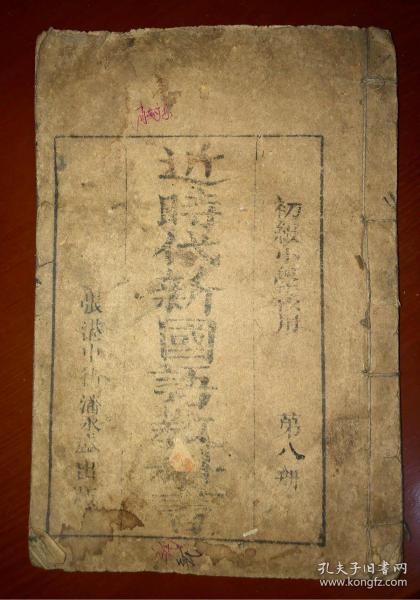 初級小學校用
第八冊
近時代新國語教科書
張港中街潘永盛出版
孔夫子旧书网
www.kongfz.com